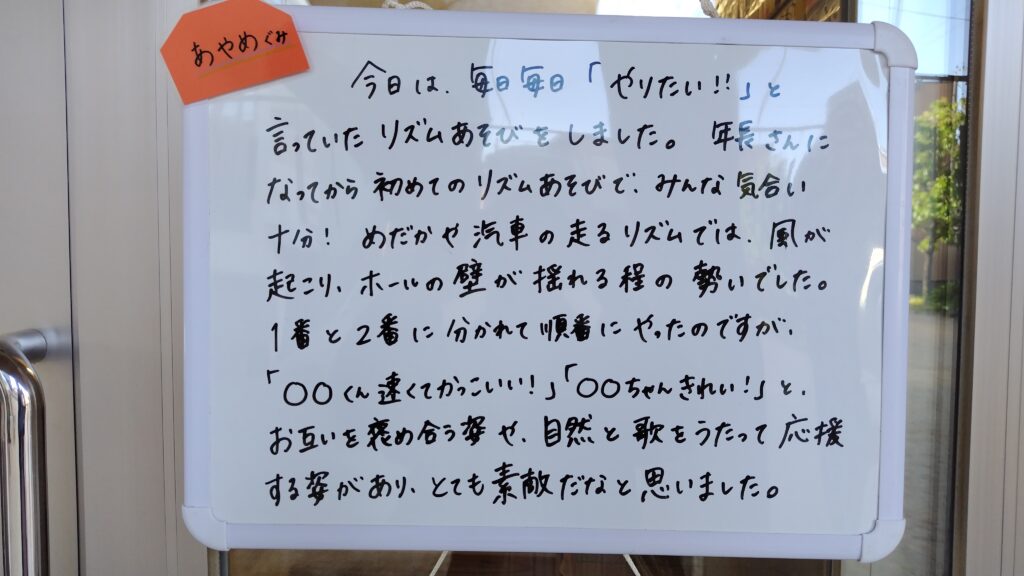 あやめぐみ
今日は、毎日毎日「やりたい!!」と
言っていたリズムあそびをしました。年長さんに
なってから初めてのリズムあそびで、みんな気合い
十分! めだかや汽車の走るリズムでは、風が
起こり、ホールの壁が揺れる程の勢いでした。
1番と2番に分かれて順番にやったのですが、
「〇〇くん速くてかっこいい!」「〇〇ちゃんきれい!」と、
お互いを褒め合う姿や、自然と歌をうたって応援
する姿があり、とても素敵だなと思いました。